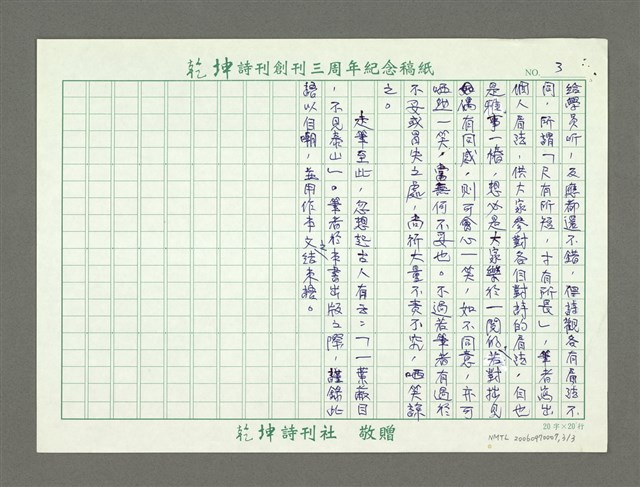 乾坤詩刊創刊三周年紀念稿紙
NO. 3
給學員听，反應都還不錯，但詩觀各有看法不
同，所謂「尺有所短，寸有所長」，筆者寫出
個人看法，供大家參對各自對詩的看法，但也
是雅事一樁，想必是大家樂於一閱的。若對拙見
偶有同感，則可會心一笑，如不同意，亦可
哂然一笑，當無何不妥也。不過若筆者有過於
不妥或冒失之處，尚祈大量不責不究，哂笑諒
之。
走筆至此，忽想起古人有云：「一葉蔽目
，不見泰山」。筆者於本書出版之際，謹錄此
語以自嘲，並用作本文之結末語。
20字×20行
乾坤詩刊社 敬贈
NMTL 20060970007,3/3